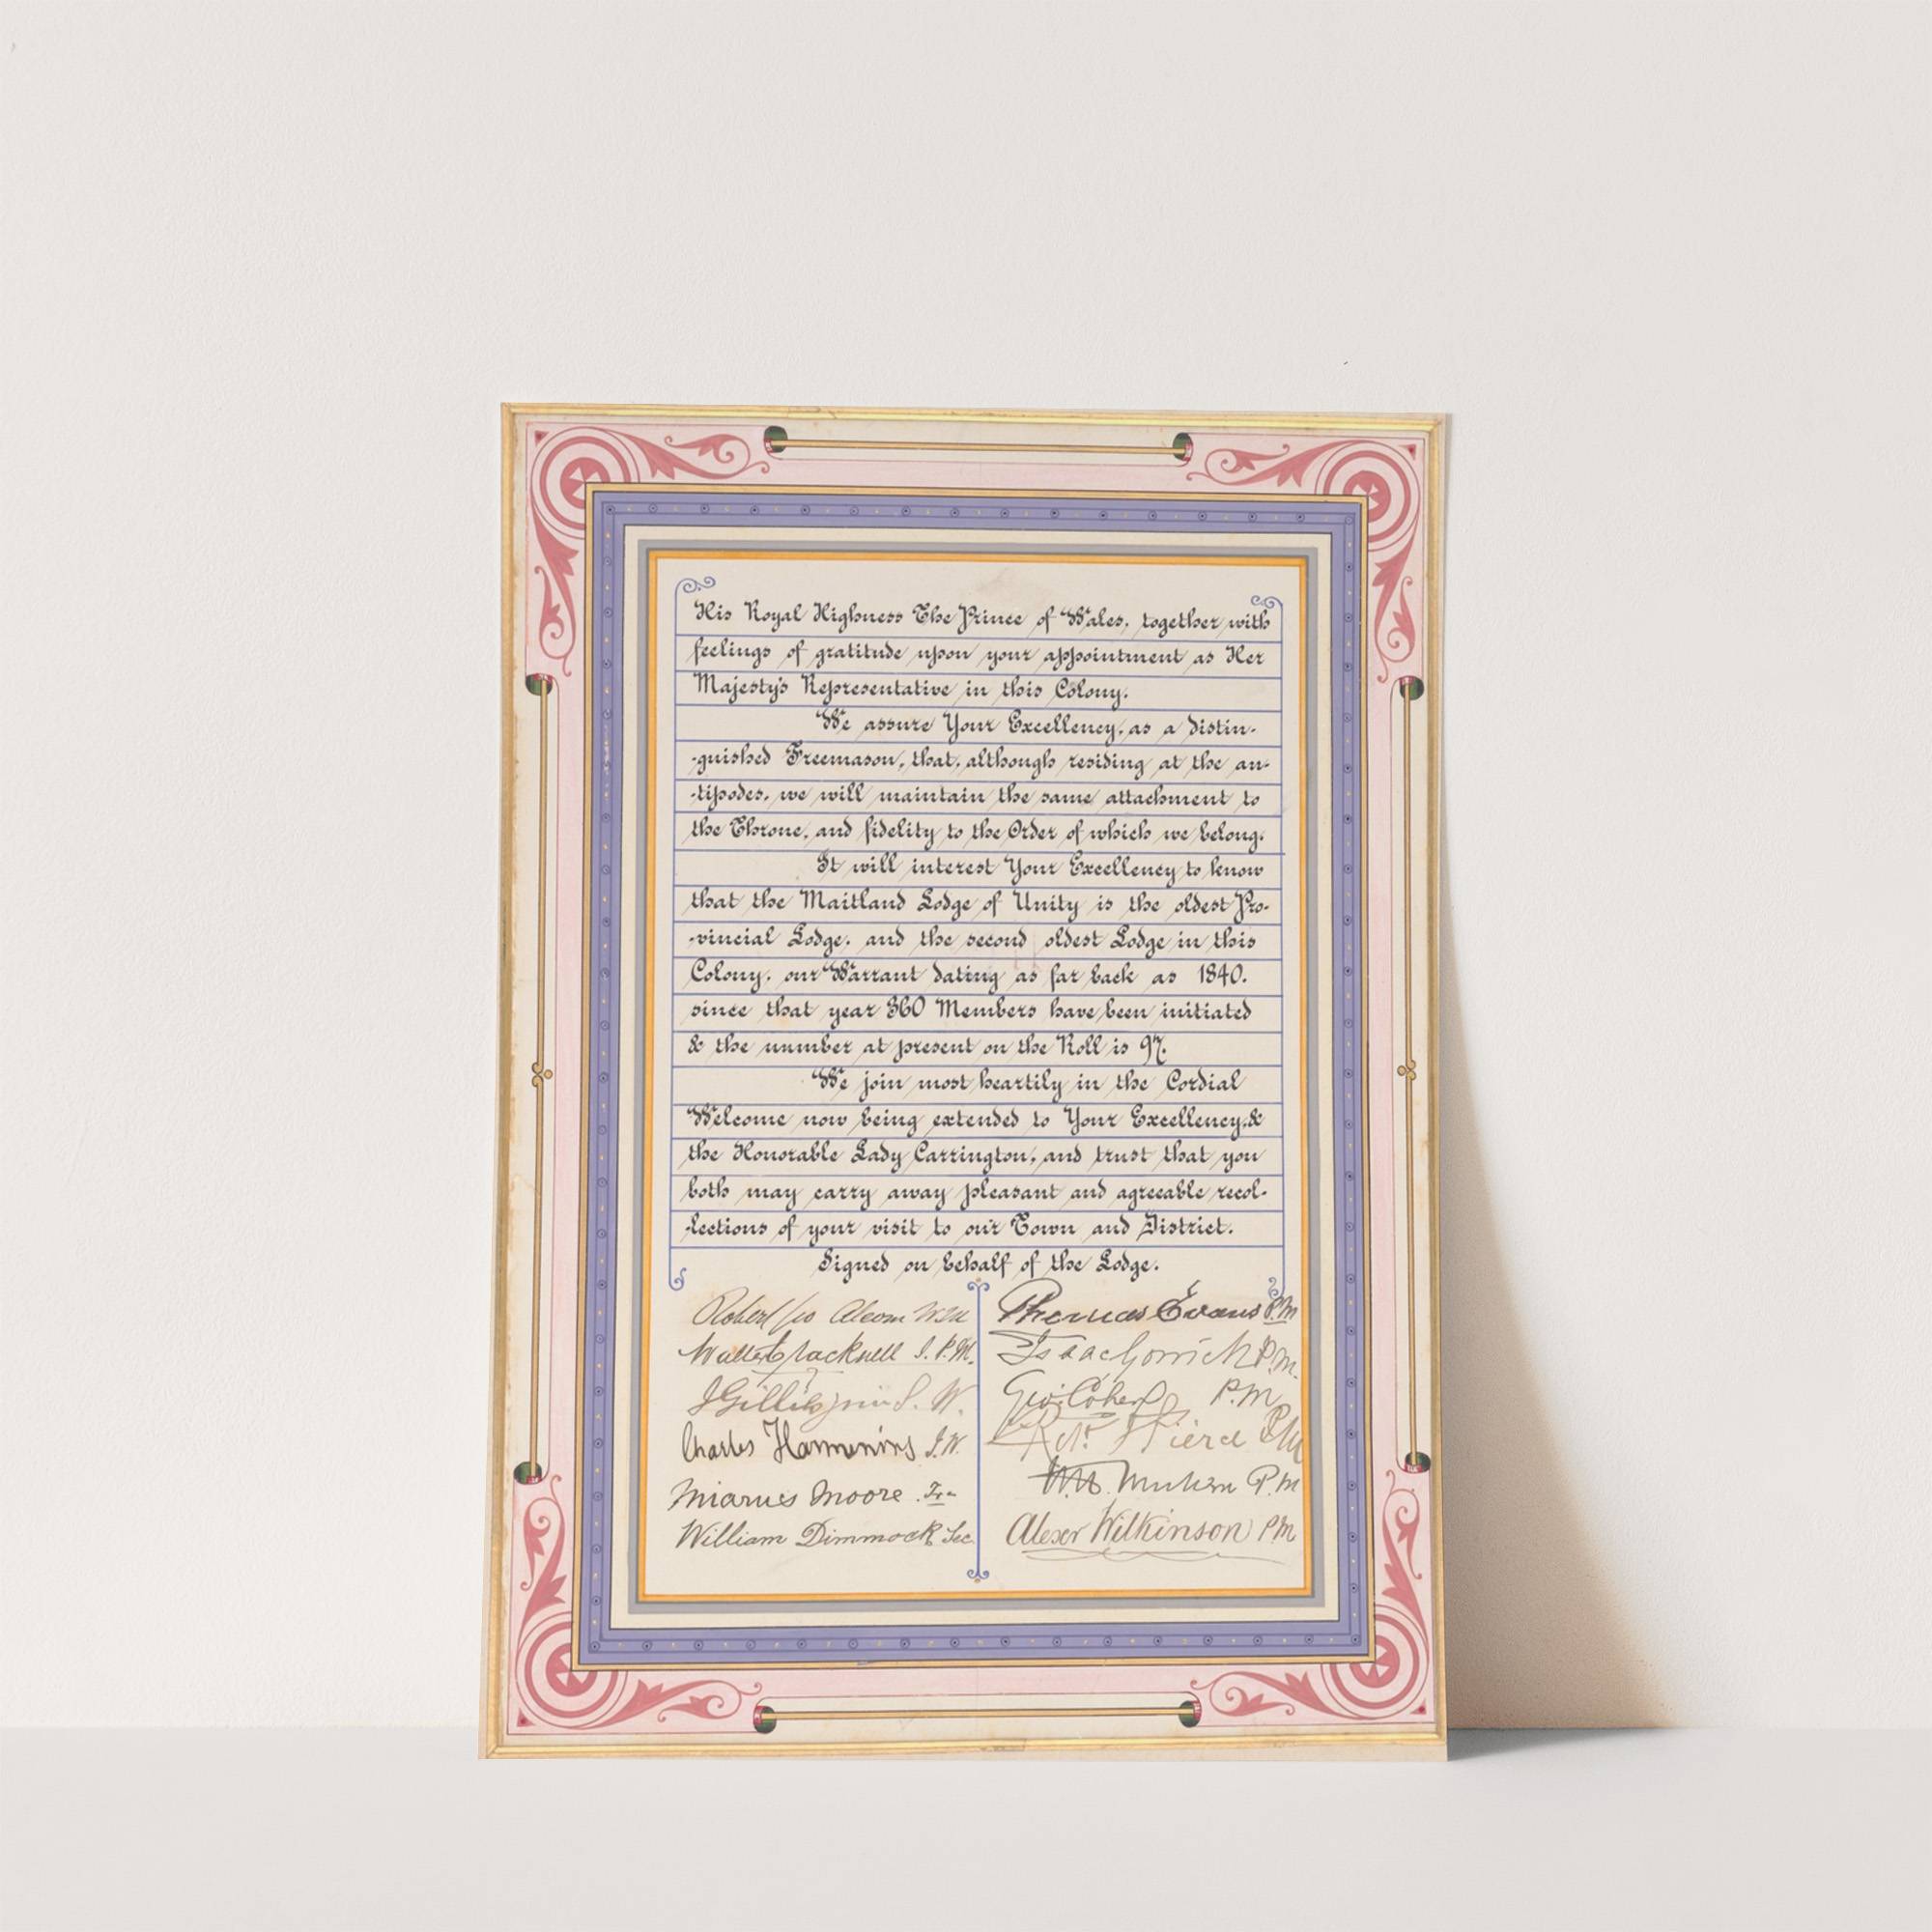 His Royal Highness The Prince of Wales, together with
feelings of gratitude upon your appointment as Her
Majesty's Representative in this Colony.
We assure Your Excellency, as a distin-
-guished Freemason, that, although residing at the an-
-tipodes, we will maintain the same attachment to
the Throne, and fidelity to the Order of which we belong.
It will interest Your Excellency to know
that the Maitland Lodge of Unity is the oldest Pro-
-vincial Lodge, and the second oldest Lodge in this
Colony, our Warrant dating as far back as 1840.
since that year 360 Members have been initiated
& the number at present on the Roll is 97.
We join most heartily in the Cordial
Welcome now being extended to Your Excellency, &
the Honorable Lady Carrington, and trust that you
both may carry away pleasant and agreeable recol-
-lections of your visit to our Town and District.
Signed on behalf of the Lodge.
Robert
Walter Cracknell I.P.M.
S.W.
Charles J.W.
Moore
William Dimmock Sec
Thomas Evans P.M
Isaac Gorrick P.M.
Geo. Cohen P.M
Pierce P.M
P.M
Alexr Wilkinson P.M